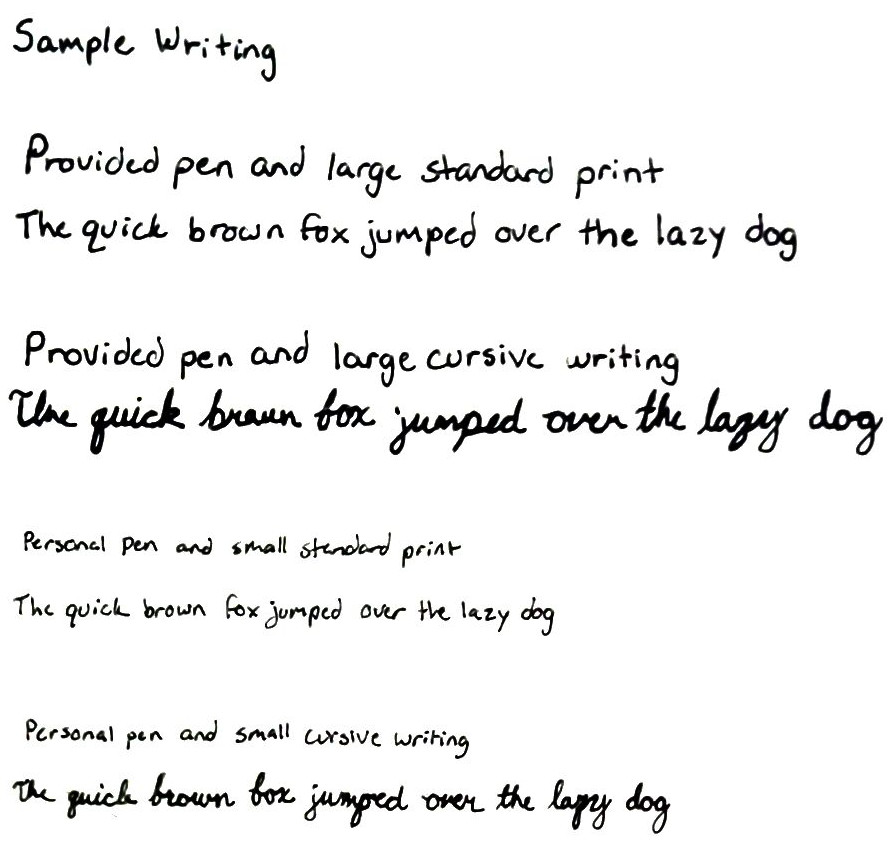 Sample Writing
Provided pen and large standard print
The quick brown fox jumped over the lazy dog
Provided pen and large cursive writing
The quick brown fox jumped over the lazy dog
Personal pen and small standard print
The quick brown fox jumped over the lazy dog
Personal pen and small cursive writing
The quick brown fox jumped over the lazy dog